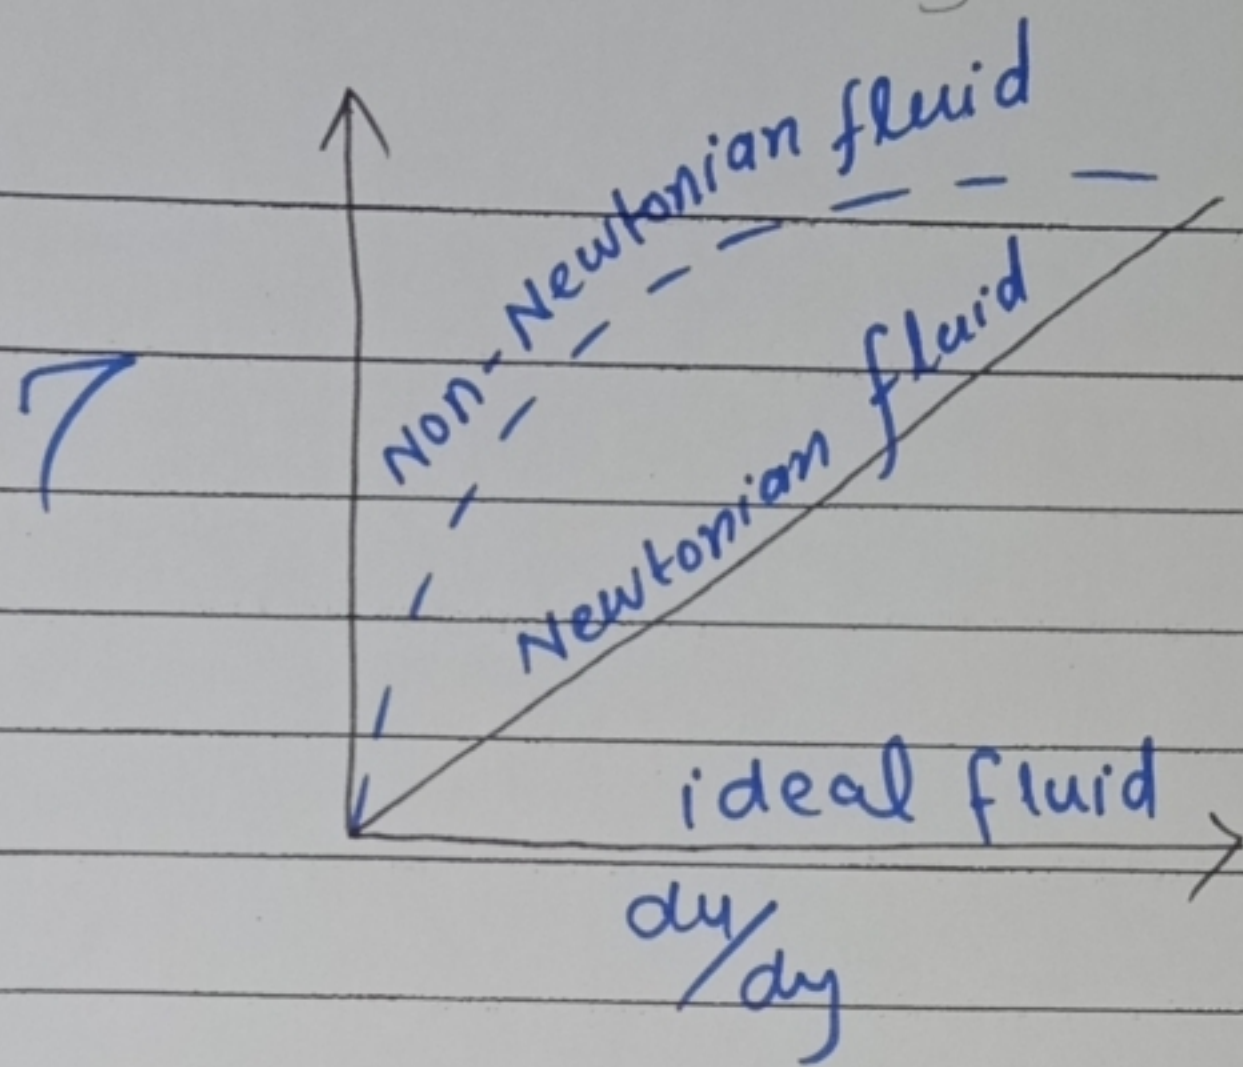 Non-Newtonian fluid
Newtonian fluid
ideal fluid
du/dy